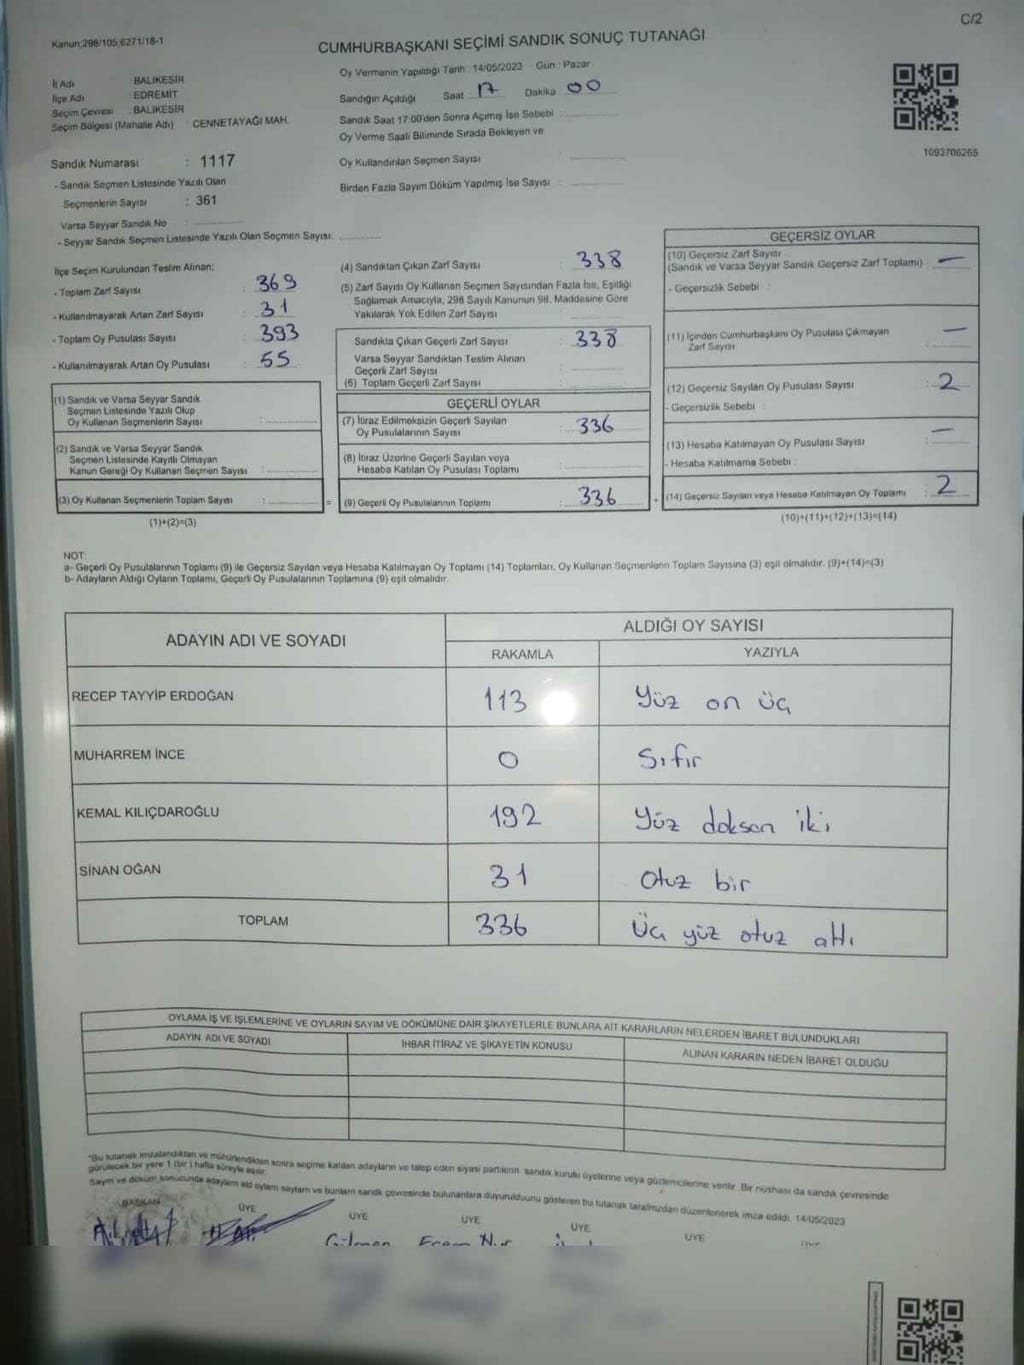 C/2
Kanun;298/105,6271/18-1
CUMHURBAŞKANI SEÇİMİ SANDIK SONUÇ TUTANAĞI
İl Adı BALIKESİR
İlçe Adı EDREMİT
Seçim Çevresi : BALIKESİR
Seçim Bölgesi (Mahalle Adı) : CENNETAYAĞI MAH.
Sandık Numarası : 1117
- Sandık Seçmen Listesinde Yazılı Olan
Seçmenlerin Sayısı : 361
Varsa Seyyar Sandık No :
- Seyyar Sandık Seçmen Listesinde Yazılı Olan Seçmen Sayısı:
Oy Vermenin Yapıldığı Tarih : 14/05/2023 Gün : Pazar
Sandığın Açıldığı Saat 17 Dakika 00
Sandık Saat 17:00'den Sonra Açımış İse Sebebi :
Oy Verme Saati Bitiminde Sırada Bekleyen ve
Oy Kullandırılan Seçmen Sayısı
Birden Fazla Sayım Döküm Yapılmış İse Sayısı :
1093706265
İlçe Seçim Kurulundan Teslim Alınan;
- Toplam Zarf Sayısı : 369
- Kullanılmayarak Artan Zarf Sayısı : 31
- Toplam Oy Pusulası Sayısı : 393
- Kullanılmayarak Artan Oy Pusulası : 55
(1) Sandık ve Varsa Seyyar Sandık
Seçmen Listesinde Yazılı Olup
Oy Kullanan Seçmenlerin Sayısı :
(2) Sandık ve Varsa Seyyar Sandık
Seçmen Listesinde Kayıtlı Olmayan
Kanun Gereği Oy Kullanan Seçmen Sayısı :
(3) Oy Kullanan Seçmenlerin Toplam Sayısı :
(1)+(2)=(3)
(4) Sandıktan Çıkan Zarf Sayısı : 338
(5) Zarf Sayısı Oy Kullanan Seçmen Sayısından Fazla İse, Eşitliği
Sağlamak Amacıyla, 298 Sayılı Kanunun 98. Maddesine Göre
Yakılarak Yok Edilen Zarf Sayısı :
Sandıkta Çıkan Geçerli Zarf Sayısı : 338
Varsa Seyyar Sandıktan Teslim Alınan
Geçerli Zarf Sayısı
(6) Toplam Geçerli Zarf Sayısı
GEÇERLİ OYLAR
(7) İtiraz Edilmeksizin Geçerli Sayılan
Oy Pusulalarının Sayısı : 336
(8) İtiraz Üzerine Geçerli Sayılan veya
Hesaba Katılan Oy Pusulası Toplamı :
= (9) Geçerli Oy Pusulalarının Toplamı : 336 +
GEÇERSİZ OYLAR
(10) Geçersiz Zarf Sayısı
(Sandık ve Varsa Seyyar Sandık Geçersiz Zarf Toplamı) : —
- Geçersizlik Sebebi :
(11) İçinden Cumhurbaşkanı Oy Pusulası Çıkmayan
Zarf Sayısı : —
(12) Geçersiz Sayılan Oy Pusulası Sayısı : 2
- Geçersizlik Sebebi :
(13) Hesaba Katılmayan Oy Pusulası Sayısı : —
- Hesaba Katılmama Sebebi :
(14) Geçersiz Sayılan veya Hesaba Katılmayan Oy Toplamı : 2
(10)+(11)+(12)+(13)=(14)
NOT:
a- Geçerli Oy Pusulalarının Toplamı (9) ile Geçersiz Sayılan veya Hesaba Katılmayan Oy Toplamı (14) Toplamları, Oy Kullanan Seçmenlerin Toplam Sayısına (3) eşit olmalıdır. (9)+(14)=(3)
b- Adayların Aldığı Oyların Toplamı, Geçerli Oy Pusulalarının Toplamına (9) eşit olmalıdır.
ADAYIN ADI VE SOYADI ALDIĞI OY SAYISI
RAKAMLA YAZIYLA
RECEP TAYYİP ERDOĞAN 113 Yüz on üç
MUHARREM İNCE 0 Sıfır
KEMAL KILIÇDAROĞLU 192 Yüz doksan iki
SİNAN OĞAN 31 Otuz bir
TOPLAM 336 Üç yüz otuz altı
OYLAMA İŞ VE İŞLEMLERİNE VE OYLARIN SAYIM VE DÖKÜMÜNE DAİR ŞİKAYETLERLE BUNLARA AİT KARARLARIN NELERDEN İBARET BULUNDUKLARI
ADAYIN ADI VE SOYADI İHBAR İTİRAZ VE ŞİKAYETİN KONUSU ALINAN KARARIN NEDEN İBARET OLDUĞU
*Bu tutanak imzalandıktan ve mühürlendikten sonra seçime katılan adayların ve talep eden siyasi partilerin sandık kurulu üyelerine veya gözlemcilerine verilir. Bir nüshası da sandık çevresinde
görülecek bir yere 1 (bir) hafta süreyle asılır.
Sayım ve döküm sonucunda adayların aldı oyların sayıların ve bunların sandık çevresinde bulunanlara duyurulduunu gösteren bu tutanak tarafımızdan düzenlenerek imza edildi. 14/05/2023
BAŞKAN ÜYE ÜYE ÜYE ÜYE ÜYE